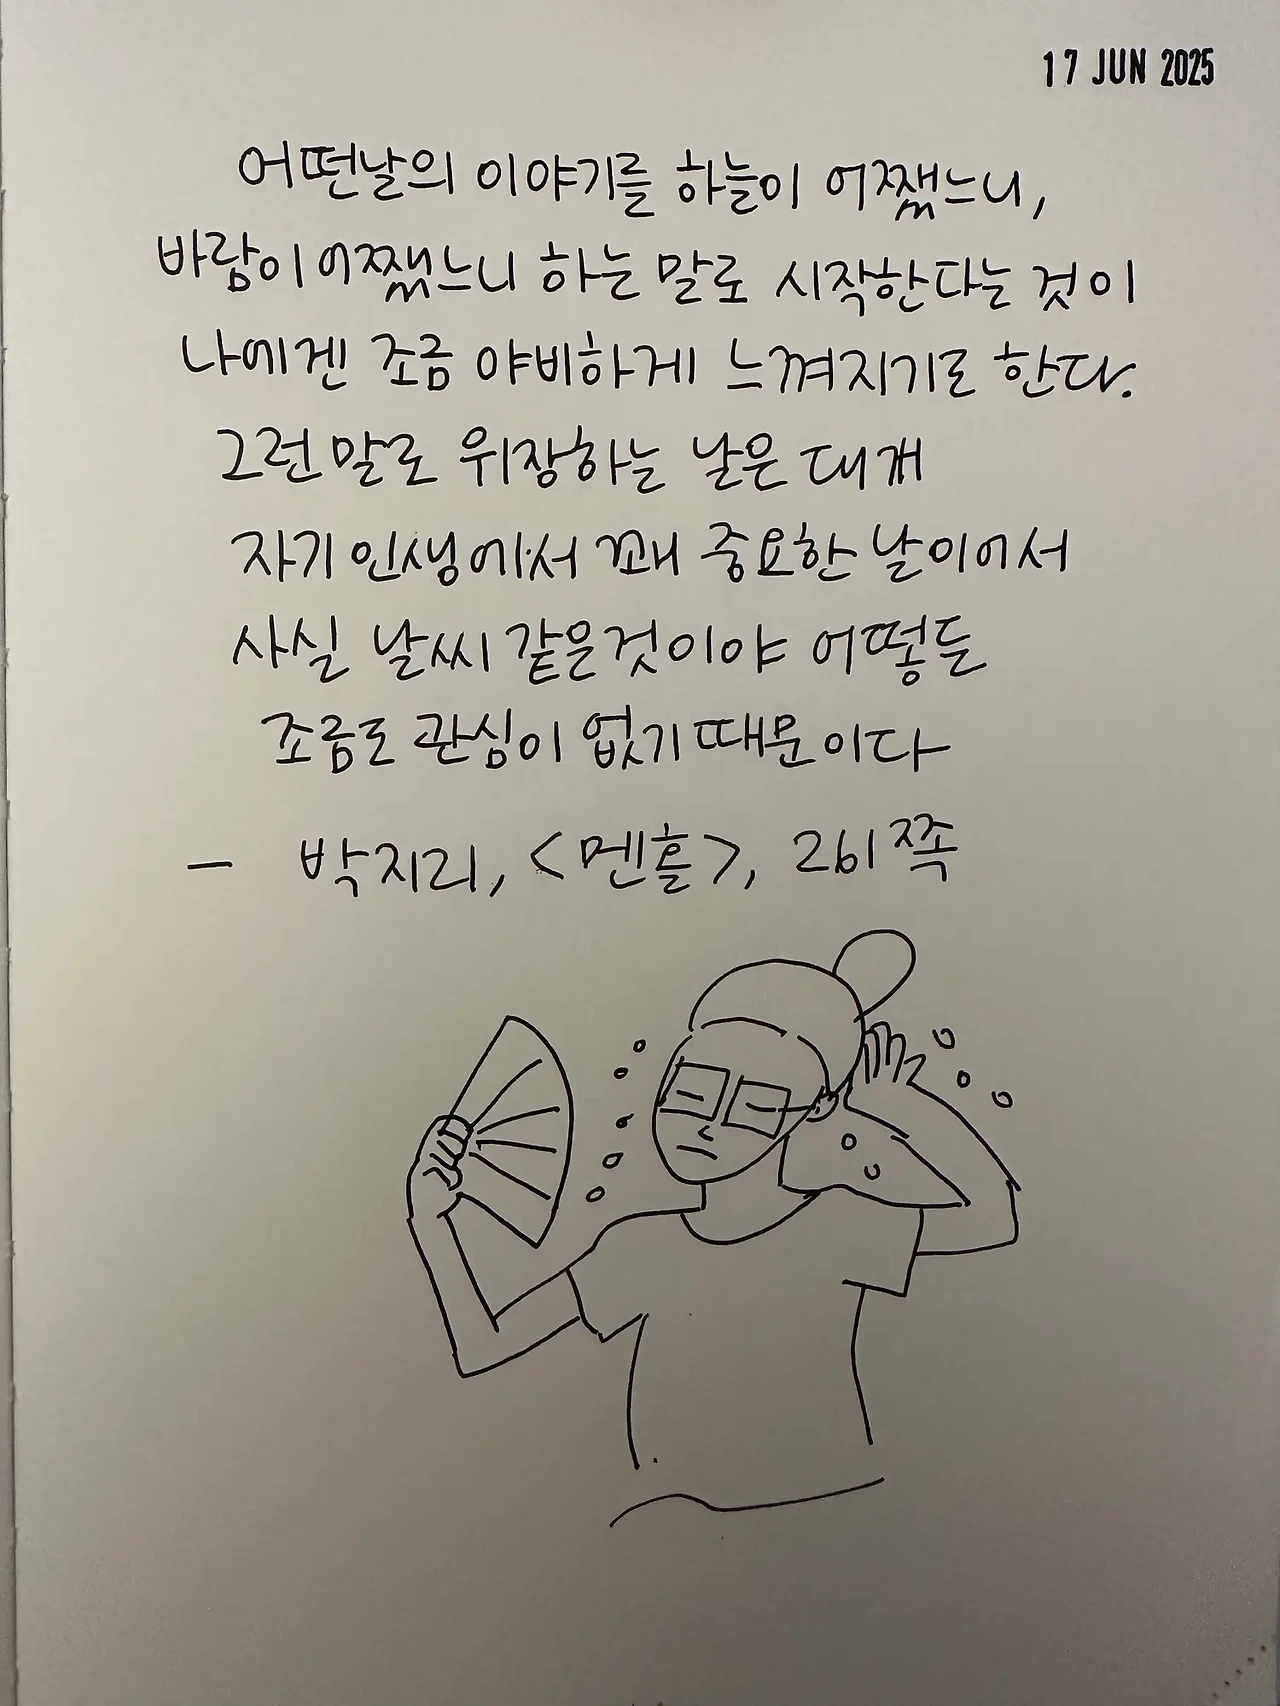 17 JUN 2025
어떤날의 이야기를 하늘이 어쨌느니,
바람이 어쨌느니 하는 말로 시작한다는 것이
나에겐 조금 야비하게 느껴지기로 한다.
그런 말로 위장하는 날은 대개
자기 인생에서 꽤 중요한 날이어서
사실 날씨 같은것이야 어떻든
조금도 관심이 없기 때문이다
— 박지리, <멘홀>, 261쪽